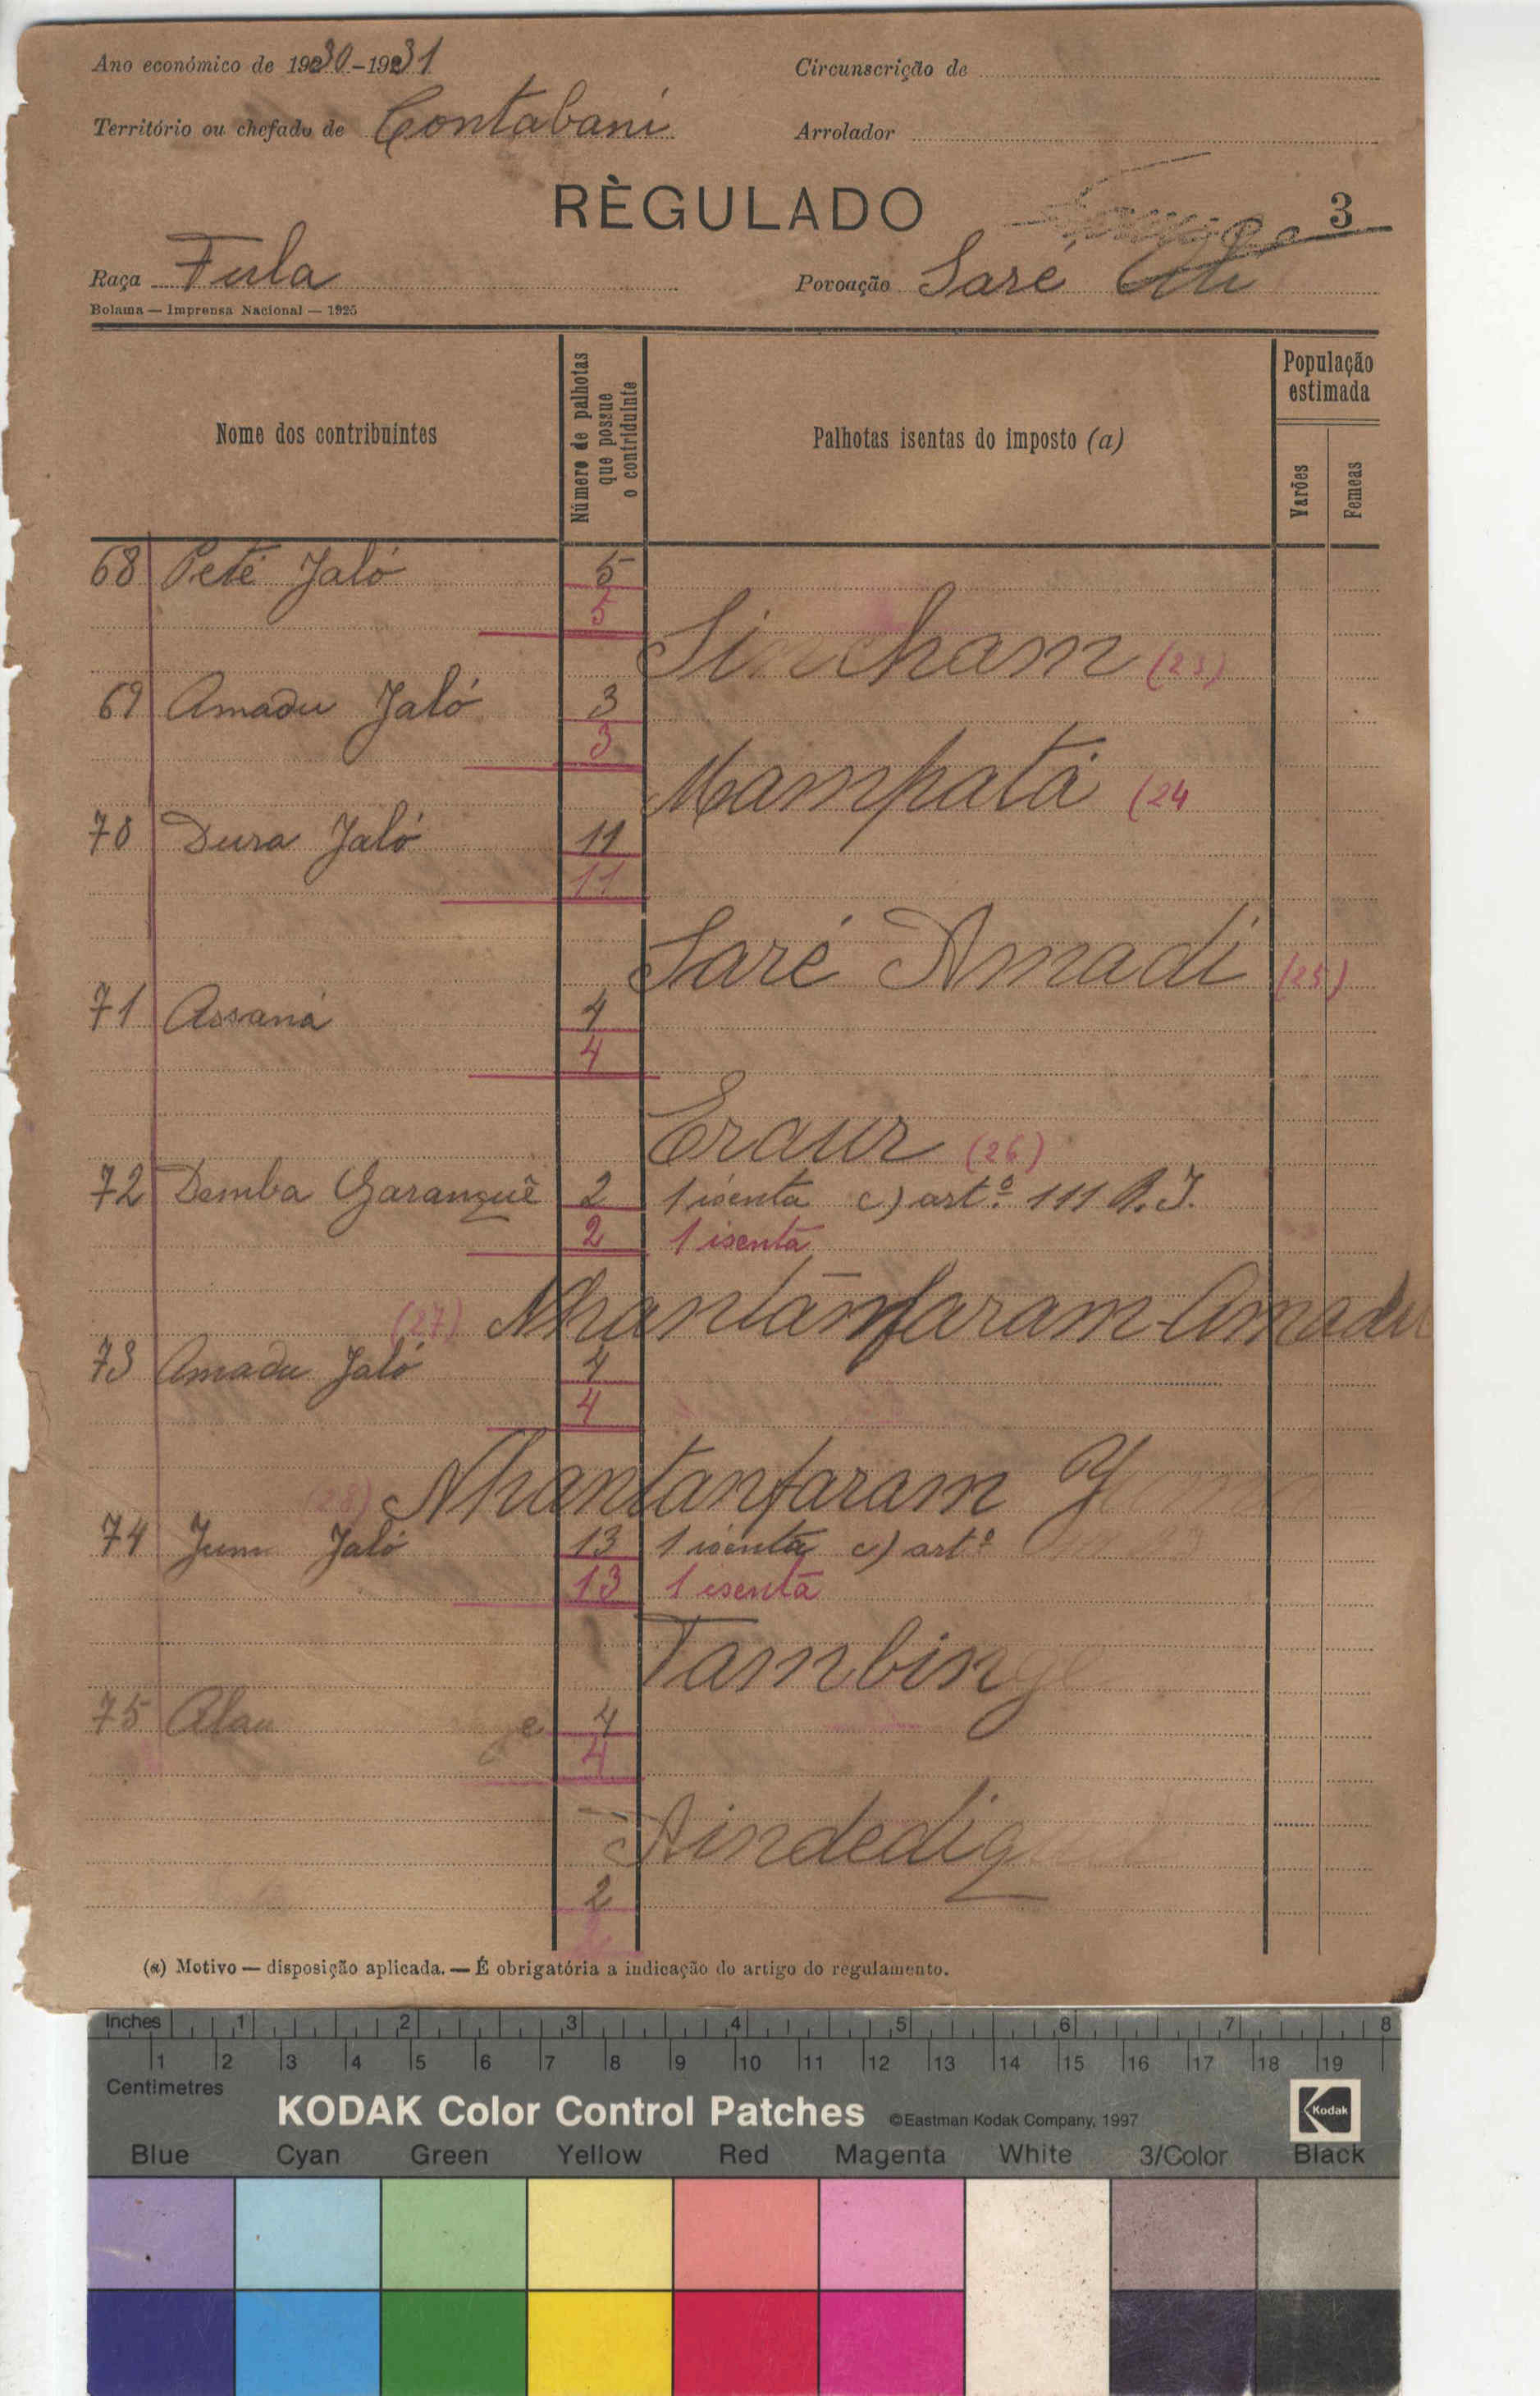 Ano económico de 1930-1931
Circunscrição de
Território ou chefado de Contabani
Arrolador
RÈGULADO
3
Raça Fula
Povoação Saré
Bolama — Imprensa Nacional — 1925
Nome dos contribuintes
Número de palhotas
que possue
o contriduinte
Palhotas isentas do imposto (a)
População
estimada
Varões
Femeas
68 Peté Jaló 5
5
Sincham (23)
69 Amadu Jaló 3
3
Mampatá (24
70 Dura Jaló 11
11
Saré Amadi (25)
71 Assaná 4
4
Eraur (26)
72 Demba Garanguê 2 1 isenta c) artº. 111 R.I.
2 1 isenta
(27) Nhantanfaram-Amadu
73 Amadu Jaló 4
4
(28) Nhantanfaram
74 Jaló 13 1 isenta c) artº
13 1 isenta
75 4
4
2
(a) Motivo — disposição aplicada. — É obrigatória a indicação do artigo do regulamento.
Inches 1 2 3 4 5 6 7 8
1 2 3 4 5 6 7 8 9 10 11 12 13 14 15 16 17 18 19
Centimetres
KODAK Color Control Patches ©Eastman Kodak Company, 1997 Kodak
Blue Cyan Green Yellow Red Magenta White 3/Color Black